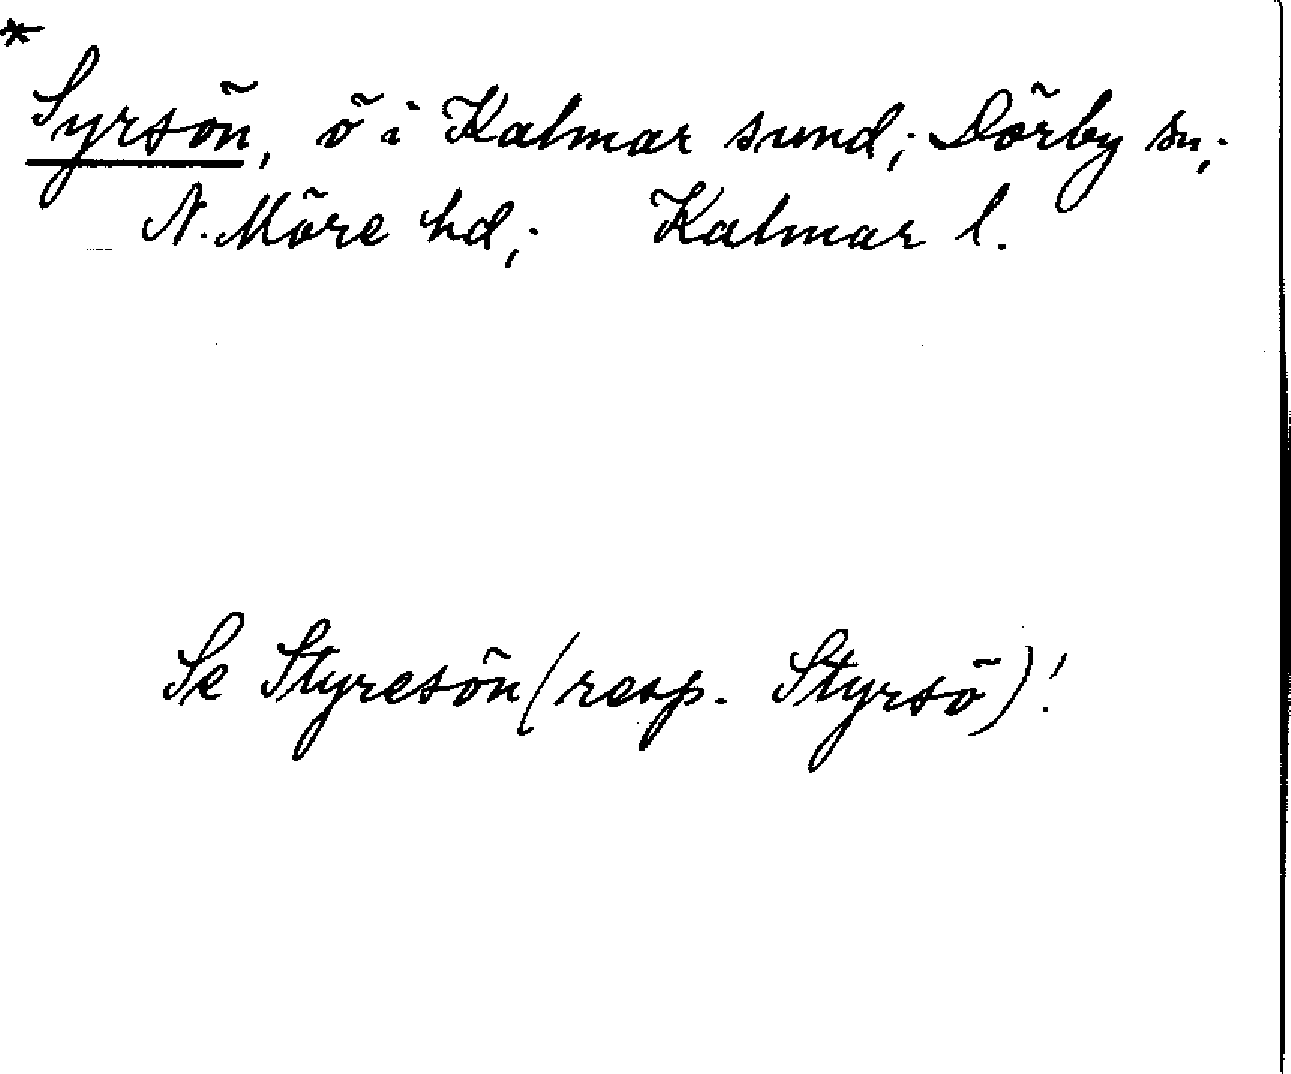 *
Syrsön, ö i Kalmar sund; Dörby sn;
N. Möre hd; Kalmar l.
Se Styresön (resp. Styrsö)!